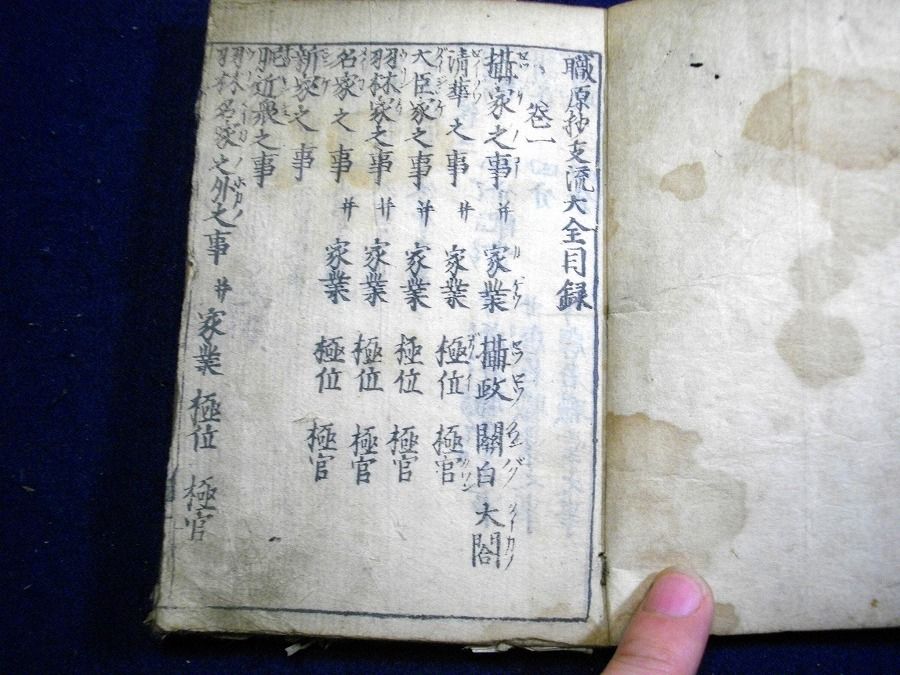 職原抄支流大全目録
巻一
攝家之事 并 家業 攝政 關白 大閤
清華之事 并 家業 極位 極官
大臣家之事 并 家業 極位 極官
羽林家之事 并 家業 極位 極官
名家之事 并 家業 極位 極官
新家之事
昵近衆之事
羽林名家之外之事 并 家業 極位 極官